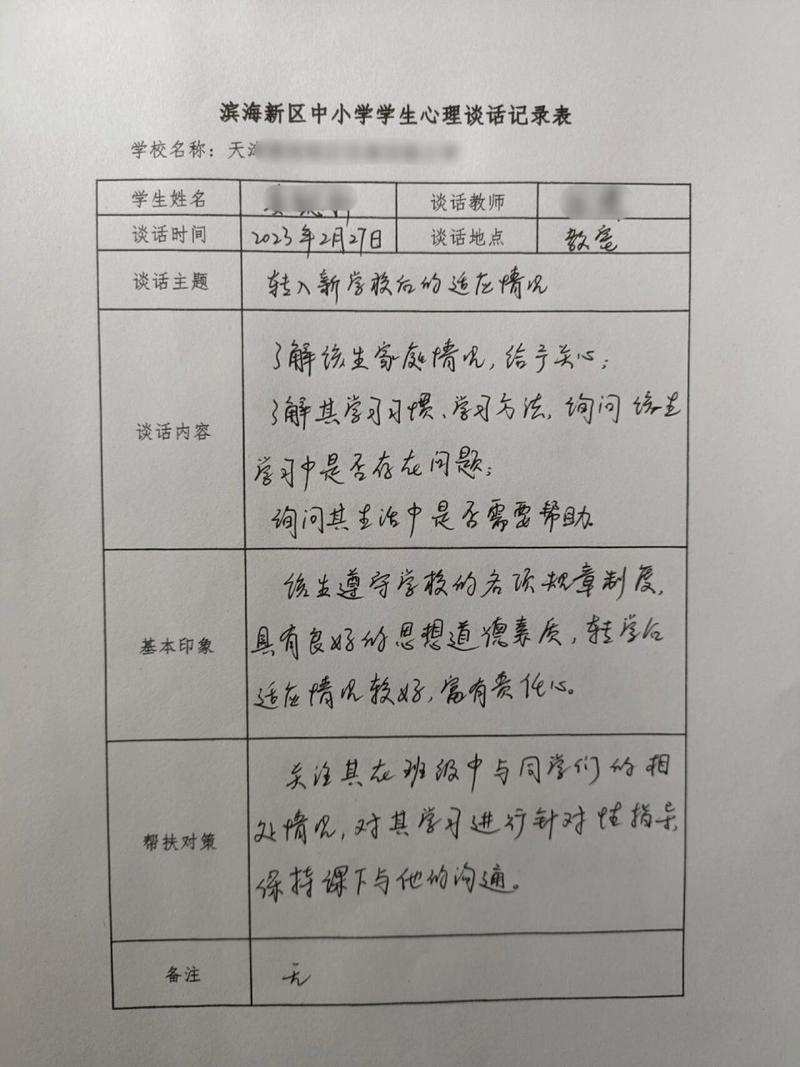 滨海新区中小学学生心理谈话记录表
学校名称：天
学生姓名 谈话教师
谈话时间 2023年2月27日 谈话地点 教室
谈话主题 转入新学校后的适应情况
谈话内容
了解该生家庭情况，给予关心；
了解其学习习惯、学习方法，询问该生
学习中是否存在问题；
询问其生活中是否需要帮助。
基本印象
该生遵守学校的各项规章制度，
具有良好的思想道德素质，转学后
适应情况较好，富有责任心。
帮扶对策
关注其在班级中与同学们的相
处情况，对其学习进行针对性指导，
保持课下与他的沟通。
备注 无